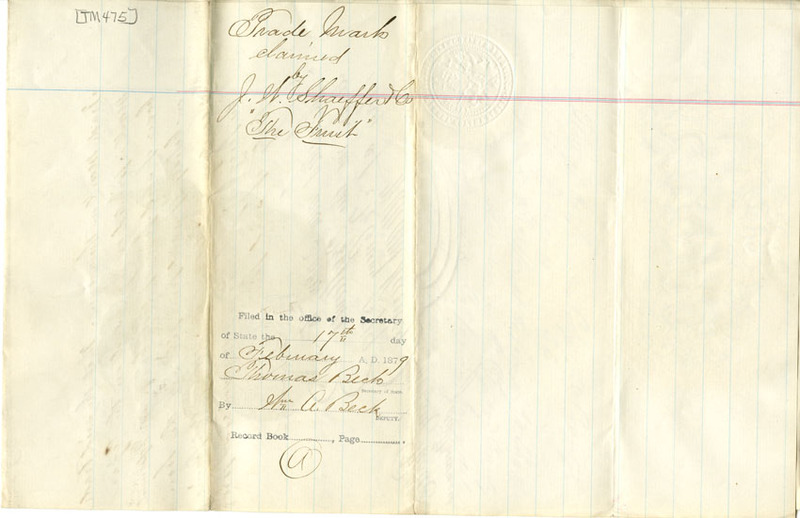 [TM475]
Trade Mark
claimed
by
J. W. Shaeffer & Co
"The Trust"
Filed in the office of the Secretary
of State the 17th day
of February A. D. 1879
Thomas Beck
Secretary of State.
By Wm A. Beck
Deputy.
Record Book ............, Page ............
A